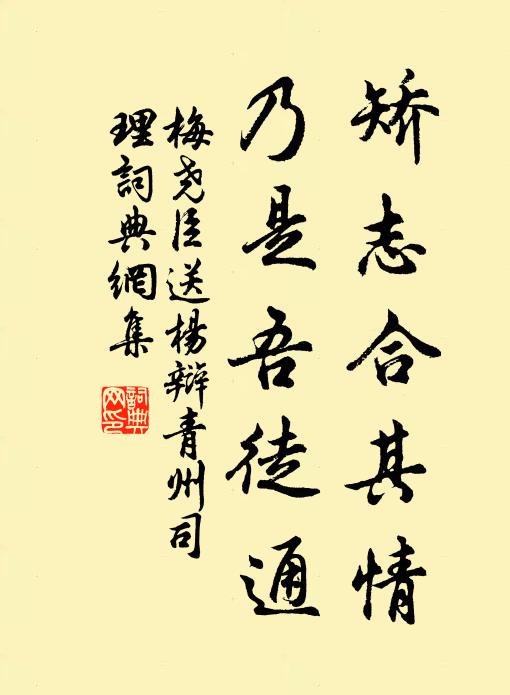 矫志合其情
乃是吾徒通
梅尧臣送杨辩青州司
理詞典網集
詞典
网印